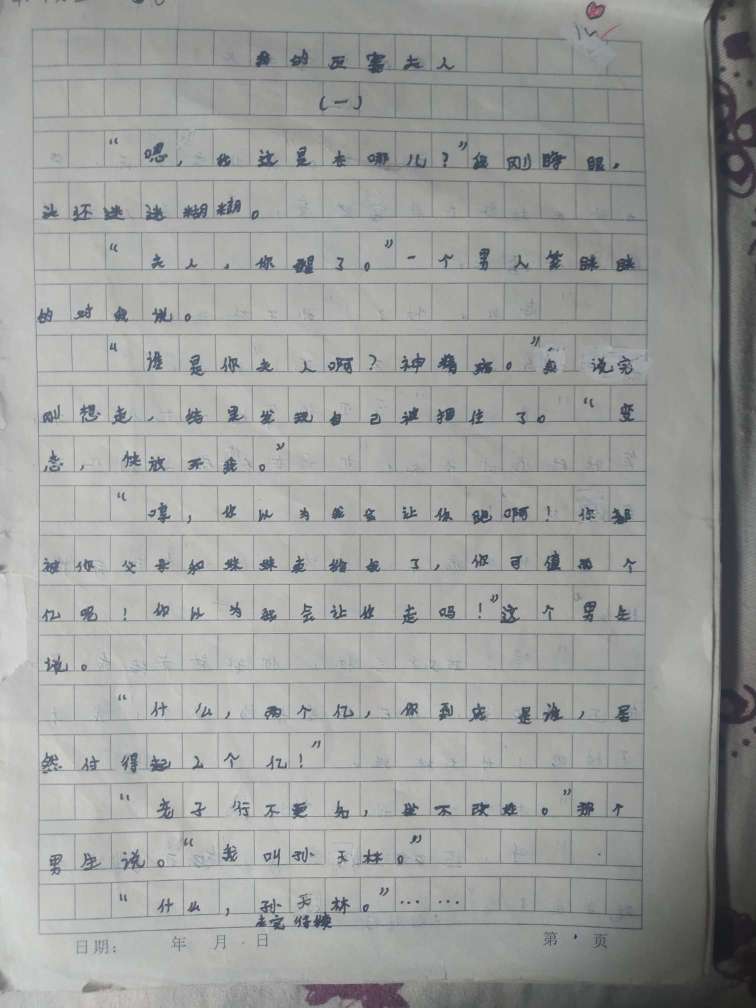 我的反害夫人
（一）
“嗯，我这是在哪儿？”我刚睁眼，
头还迷迷糊糊。
“夫人，你醒了。”一个男人笑眯眯
的对我说。
“谁是你夫人啊？神精病。”我说完
刚想走，结果发现自己被捆住了。“变
态，快放开我。”
“哼，你以为我会让你跑啊！你都
被你父母和妹妹卖给我了，你可值两个
亿呢！你以为我会让你走吗！”这个男生
说。
“什么，两个亿，你到底是谁，居
然付得起2个亿！”
“老子行不更名，坐不改姓。”那个
男生说。“我叫孙天林。”
“什么，孙天林。”……
未完待续
日期： 年 月 日 第 页